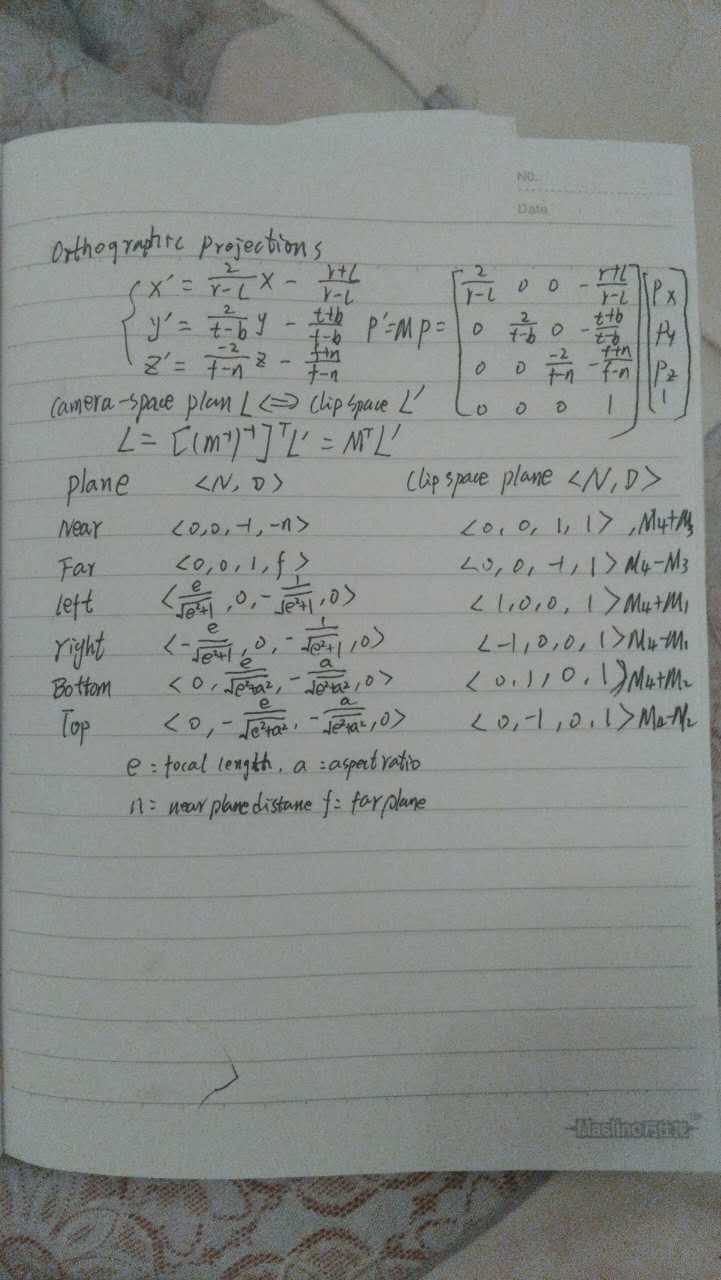 No.
Date
Orthographic projections
x' = 2/(r-L) x - (r+L)/(r-L)
y' = 2/(t-b) y - (t+b)/(t-b)
z' = -2/(f-n) z - (f+n)/(f-n)
P' = MP = [2/(r-L) 0 0 -(r+L)/(r-L)] [Px]
[0 2/(t-b) 0 -(t+b)/(t-b)] [Py]
[0 0 -2/(f-n) -(f+n)/(f-n)] [Pz]
[0 0 0 1] [1]
Camera-space plan L <=> Clip space L'
L = [(m⁻¹)⁻¹]ᵀL' = MᵀL'
plane <N, D> Clip space plane <N, D>
Near <0,0,-1,-n> <0, 0, 1, 1> , M4+M3
Far <0,0,1,f> <0, 0, -1, 1> M4-M3
left <e/√(e²+1), 0, -1/√(e²+1), 0> <1,0,0,1> M4+M1
right <-e/√(e²+1), 0, -1/√(e²+1), 0> <-1,0,0,1> M4-M1
Bottom <0, e/√(e²+a²), -a/√(e²+a²), 0> <0,1,0,1> M4+M2
Top <0, -e/√(e²+a²), -a/√(e²+a²), 0> <0,-1,0,1> M4-M2
e = focal length, a = aspect ratio
n = near plane distane f = far plane